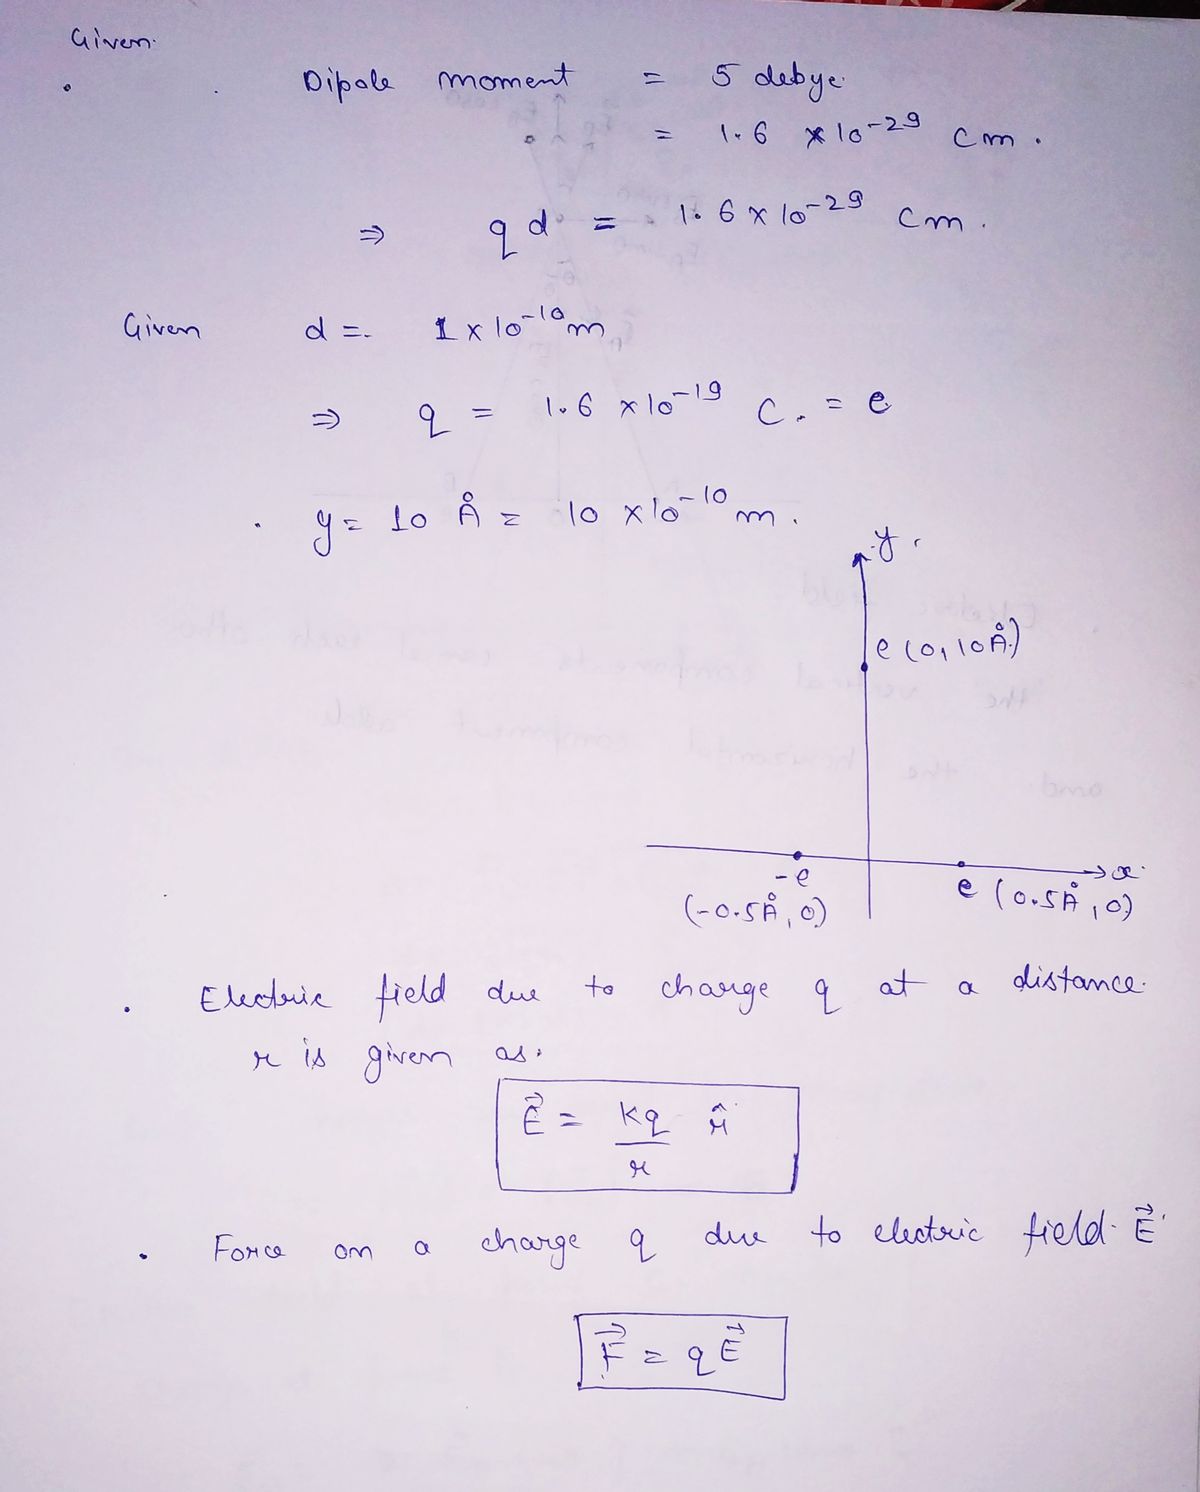 Given.
. . Dipole moment = 5 debye.
= 1.6 × 10⁻²⁹ cm.
⇒ qd = 1.6 × 10⁻²⁹ cm.
Given d = 1 × 10⁻¹⁰ m
⇒ q = 1.6 × 10⁻¹⁹ C. = e
. y = 10 Å = 10 × 10⁻¹⁰ m.
y.
e (0, 10Å)
x
-e
e (0.5Å, 0)
(-0.5Å, 0)
. Electric field due to charge q at a distance.
r is given as.
E⃗ = kq/r r̂
. Force on a charge q due to electric field E⃗
F⃗ = qE⃗